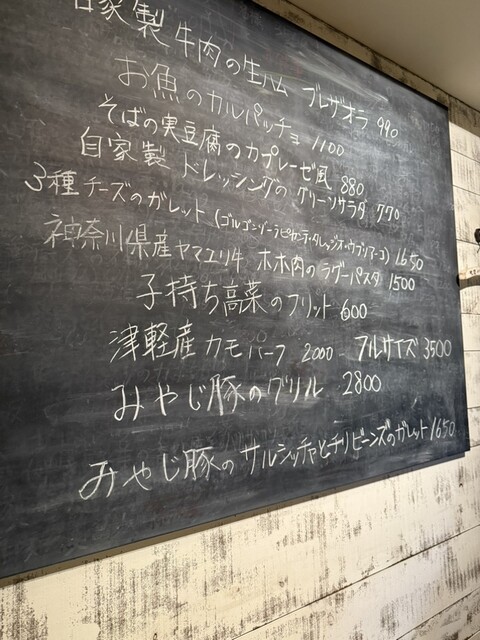 自家製 牛肉の生ハム ブレザオラ 990
お魚のカルパッチョ 1100
そばの実豆腐のカプレーゼ風 880
自家製 ドレッシングの グリーンサラダ 770
3種チーズのガレット (ゴルゴンゾーラピカンテ・タレッジオ・ウブリアーコ) 1650
神奈川県産ヤマユリ牛 ホホ肉のラグーパスタ 1500
子持ち高菜のフリット 600
津軽産カモ ハーフ 2000- フルサイズ 3500
みやじ豚のグリル 2800
みやじ豚の サルシッチャとチリビーンズのガレット 1650